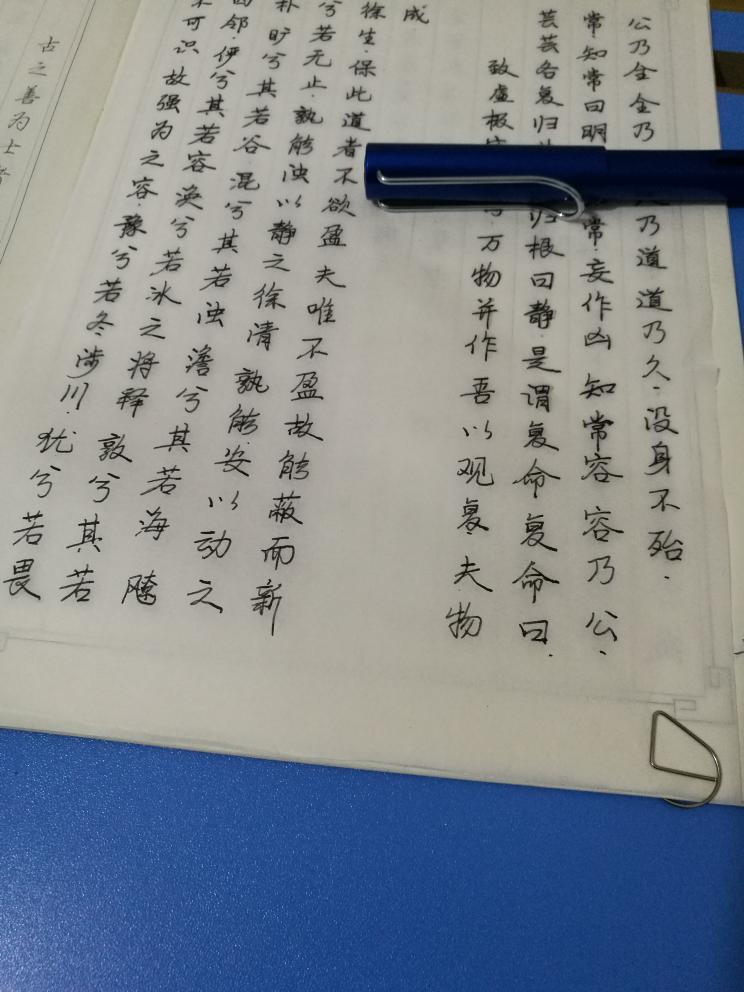 古之善为士者
不可识故强为之容·豫兮若冬涉川·犹兮若畏
四邻·伊兮其若容涣兮若冰之将释敦兮其若
朴旷兮其若谷混兮其若浊澹兮其若海飂
兮若无止·孰能浊以静之徐清孰能安以动之
徐生·保此道者不欲盈夫唯不盈故能蔽而新
成
致虚极万物并作吾以观复夫物
芸芸各复归归根曰静·是谓复命复命曰·
常知常曰明常·妄作凶知常容容乃公·
公乃全全乃乃道道乃久·没身不殆·